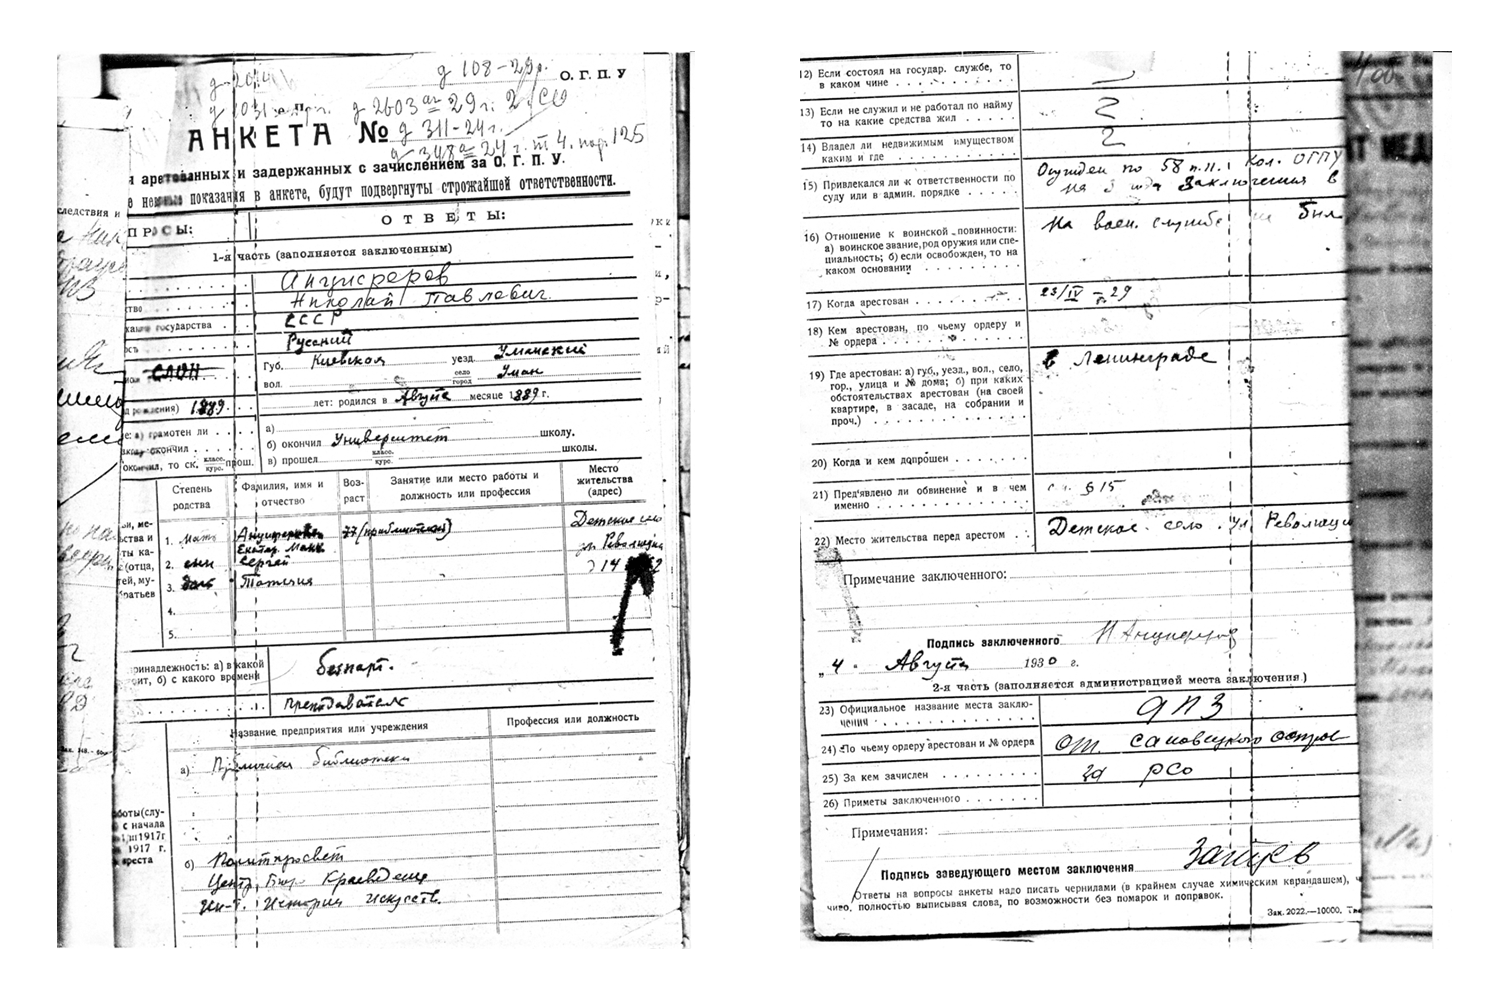 д 108-29г.
О. Г. П. У
д 2603 ав 29 г. 2 РСО
АНКЕТА №
д 311-24г.
д 348 а 24 г. т 4. пор. 125
я арестованных и задержанных с зачислением за О. Г. П. У.
е неверные показания в анкете, будут подвергнуты строжайшей ответственности.
следствия и
ПРОСЫ:
ОТВЕТЫ:
1-я часть (заполняется заключенным)
Анциферов
ство
Николай Павлович
какого государства
СССР
ость
Русский
Губ. Киевская уезд. Уманский
СЛОН
вол. село город Умань
д рождения) 1889.
лет: родился в Августе месяце 1889 г.
е: а) грамотен ли
а)
окончил
б) окончил Университет школу.
окончил, то ск. класс. курс. прош.
в) прошел класс. курс. школы.
Степень родства
Фамилия, имя и отчество
Воз-раст
Занятие или место работы и должность или профессия
Место жительства (адрес)
1. Мать
Екатер. Макс
77 (приблизительно)
Детское село
2. сын Сергей
ул Революции
3. дочь Татьяна
д 14
4.
5.
принадлежность: а) в какой
оит, б) с какого времени
беспарт.
преподаватель
Название предприятия или учреждения
Профессия или должность
а) Публичная библиотека
боты (слу-
с начала
1917 г.
ареста
б) Политпросвет
Центр. Бюро Краеведения
Ин-т. Истории Искусств.
12) Если состоял на государ. службе, то
в каком чине
13) Если не служил и не работал по найму
то на какие средства жил
14) Владел ли недвижимым имуществом
каким и где
15) Привлекался ли к ответственности по
суду или в админ. порядке
Осужден по 58 п. 11. Кол. ОГПУ
на 3 года заключения в
16) Отношение к воинской повинности:
а) воинское звание, род оружия или спе-
циальность; б) если освобожден, то на
каком основании
На воен. службе не был
17) Когда арестован
23/IV – 29
18) Кем арестован, по чьему ордеру и
№ ордера
19) Где арестован: а) губ., уезд., вол., село,
гор., улица и № дома; б) при каких
обстоятельствах арестован (на своей
квартире, в засаде, на собрании и
проч.)
в Ленинграде
20) Когда и кем допрошен
21) Предъявлено ли обвинение и в чем
именно
22) Место жительства перед арестом
Детское село. ул Революции
Примечание заключенного:
Подпись заключенного Н Анциферов
„4 " Августа 1930 г.
2-я часть (заполняется администрацией места заключения)
23) Официальное название места заклю-
чения
ДПЗ
24) По чьему ордеру арестован и № ордера
от. Соловецкого остров
25) За кем зачислен
за РСО
26) Приметы заключенного
Примечания:
Подпись заведующего местом заключения Зайцев
Ответы на вопросы анкеты надо писать чернилами (в крайнем случае химическим карандашем), ч
чиво, полностью выписывая слова, по возможности без помарок и поправок.
Зак. 2022.—10000.